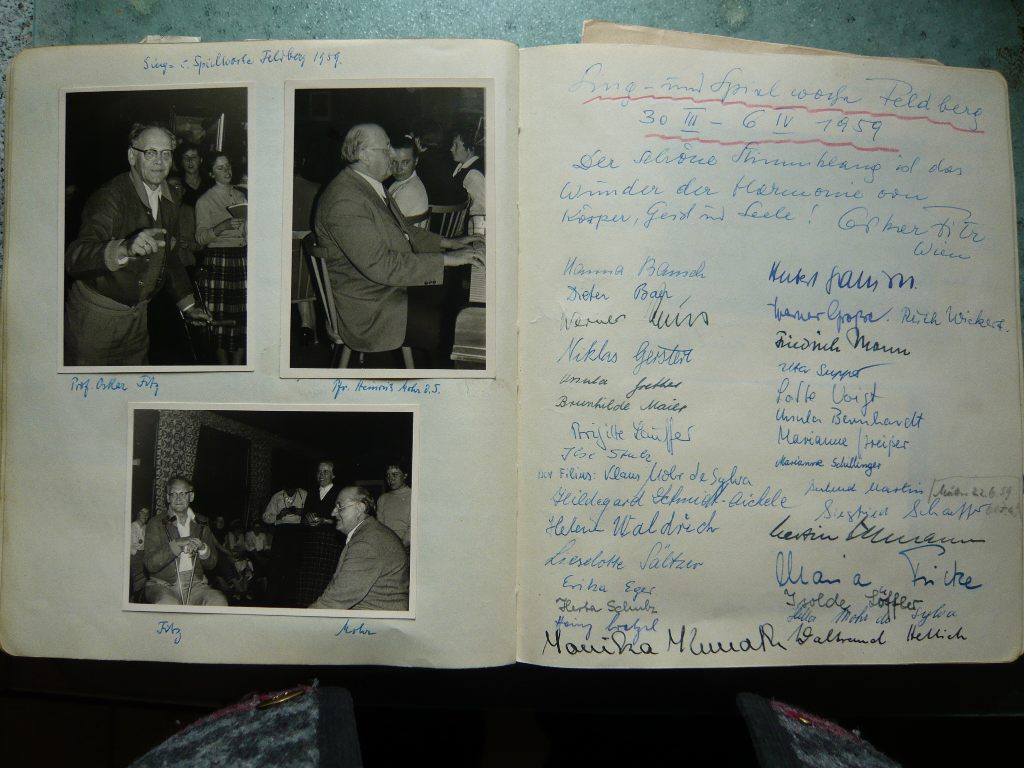 Sing- u. Spielwoche Feldberg 1959.
Prof. Oskar Fitz
Pfr. Heinrich Mohr d. S.
Fitz
Mohr
Sing- und Spielwoche Feldberg
30 III – 6 IV 1959
Der schöne Stimmklang ist das
Wunder der Harmonie von
Körper, Geist und Seele! Oskar Fitz
Wien
Hanna Bausch
Dieter Bayr
Werner
Niklas Gerstert
Ursula
Brunhilde Maier
Brigitte Läuffer
Ilse Stulz
Filius: Klaus Mohr da Sylva
Hildegard Schmidt-Aickele
Helene Waldrich
Lieselotte Sältzer
Erika Eger
Herta Schulz
Heinz
Monika
Werner Große. Ruth Wickert.
Friedrich Mann
Uta Seppet
Lotte Voigt
Ursula Bernhardt
Marianne
Marianne Schillinger
Martin
Siegfried
Maria Fricke
Isolde Löffler
Mohr da Sylva
Waltraud Hettich